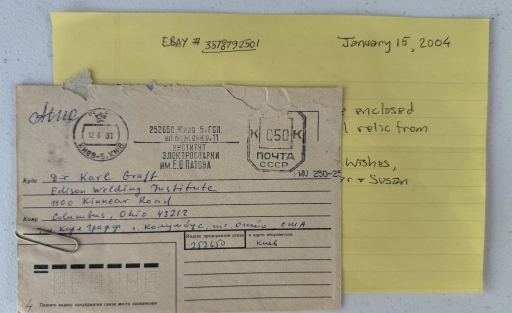 EBAY # 3578792501
January 15, 2004
enclosed
relic from
Wishes,
+ Susan
Авиа
КИЕВ-5
252650. Киев 5. ГСП
ул. Боженко, 11
ИНСТИТУТ
ЭЛЕКТРОСВАРКИ
ИМ. Е.О. ПАТОНА
К 050 К
ПОЧТА
СССР
Куда Dr Karl Graff
Edison Welding Institute
1100 Kinnear Road
Кому Columbus, Ohio 43212
Карл Графф, Колумбус, шт. Огайо США
Индекс предприятия связи и адрес отправителя
252650 Киев
Пишите индекс предприятия связи места назначения
4